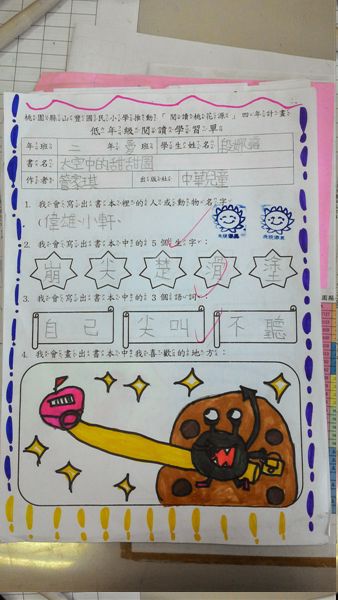 桃園縣山豐國民小學推動「閱讀桃花源」四年計畫
低年級閱讀學習單
年班 二年愛班 學生姓名
書名 太空中的甜甜圈
作者 管家琪 出版社 中華兒童
1. 我會寫出書本裡的人或動物名字
(偉雄、小軒、
2. 我會寫出書本中的5個生字:
崩 尖 楚 滑 塗
3. 我會寫出書本中的3個語詞:
自己 尖叫 不聽
4. 我會畫出書本中我喜歡的地方: